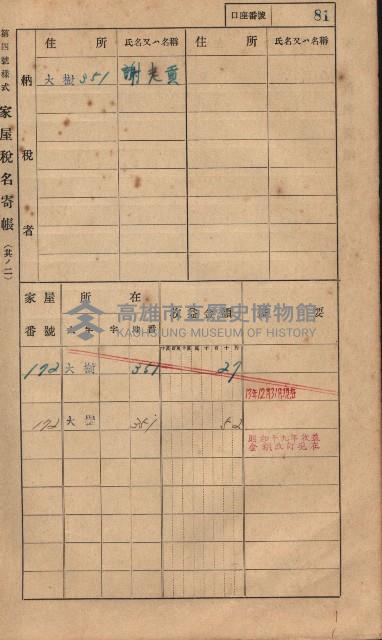 口座番號 81
第四號樣式 家屋稅名寄帳 (其ノ二)
納稅者
住所 氏名又ハ名稱 住所 氏名又ハ名稱
大樹 351 謝
家屋番號 所在 收益金額 要
大字 字 地番
172 大樹 351 27
19年12月31日現在
172 大樹 351 52
昭和十九年收益
金額改訂現在
高雄市立歷史博物館
KAOHSIUNG MUSEUM OF HISTORY